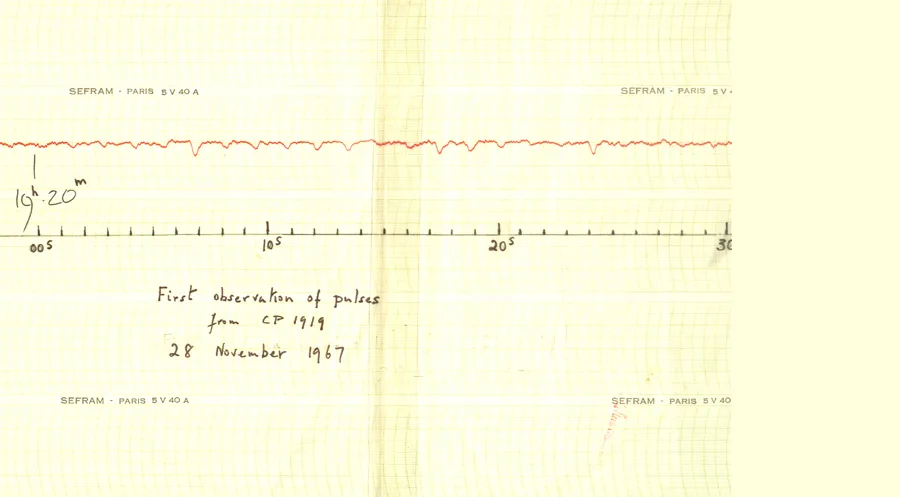 SEFRAM - PARIS 5 V 40 A
SEFRAM - PARIS 5 V
19h.20m
00s
10s
20s
30
First observation of pulses
from CP 1919
28 November 1967
SEFRAM - PARIS 5 V 40 A
SEFRAM - PARIS 5 V 40